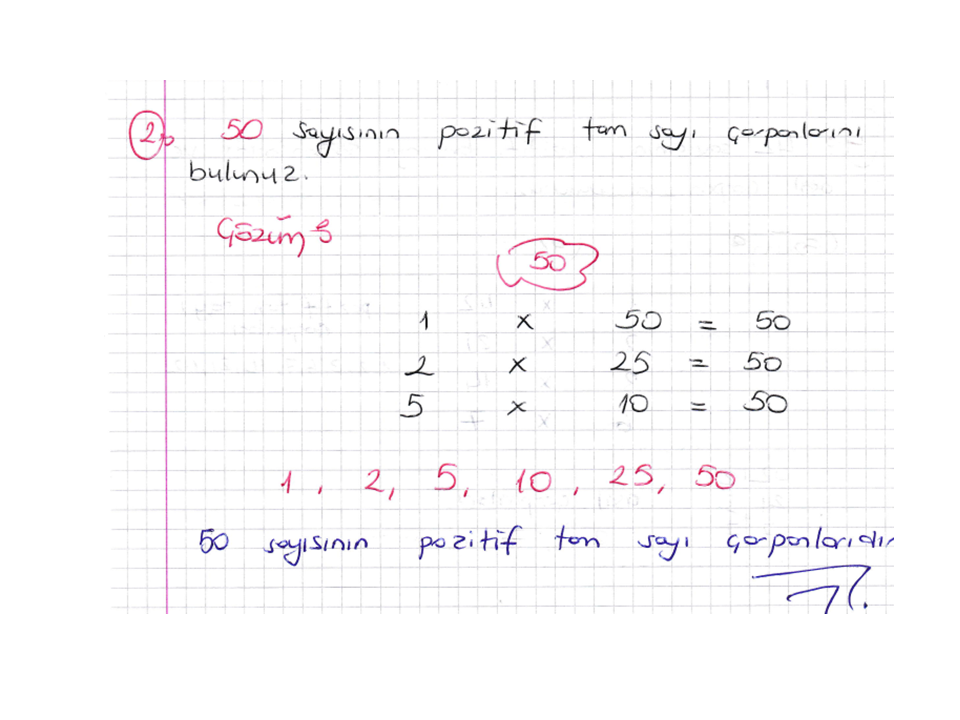 2) 50 sayısının pozitif tam sayı çarpanlarını
bulunuz.
Çözüm:
50
1 x 50 = 50
2 x 25 = 50
5 x 10 = 50
1, 2, 5, 10, 25, 50
50 sayısının pozitif tam sayı çarpanlarıdır